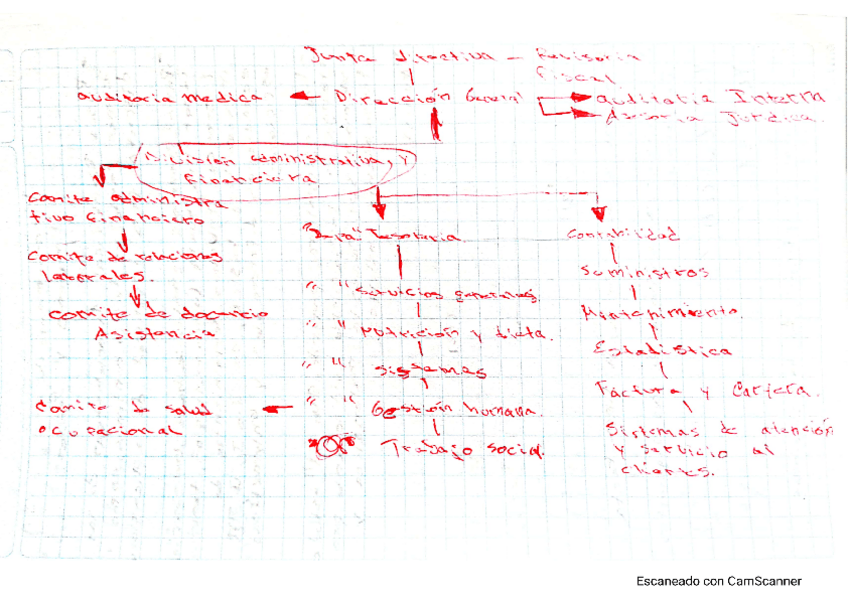 Junta directiva - Revisoria
fiscal
auditoria medica Dirección General auditoria Interna
Asesoria Juridica.
División administrativa, y
financiera
Comite administra
tivo financiero
"Dia" Tesoreria Contabilidad
Comite de relaciones
laborales.
Suministros
" " Servicios generales.
Comite de docencio
Asistencia
Mantenimiento.
" " Nutrición y dieta.
Estadistica
" " Sistemas
Factura y Cartera.
Comite de salud
ocupacional
" " Gestión humana.
Sistemas de atención
y servicio al
clientes.
Trabajo social.
Escaneado con CamScanner